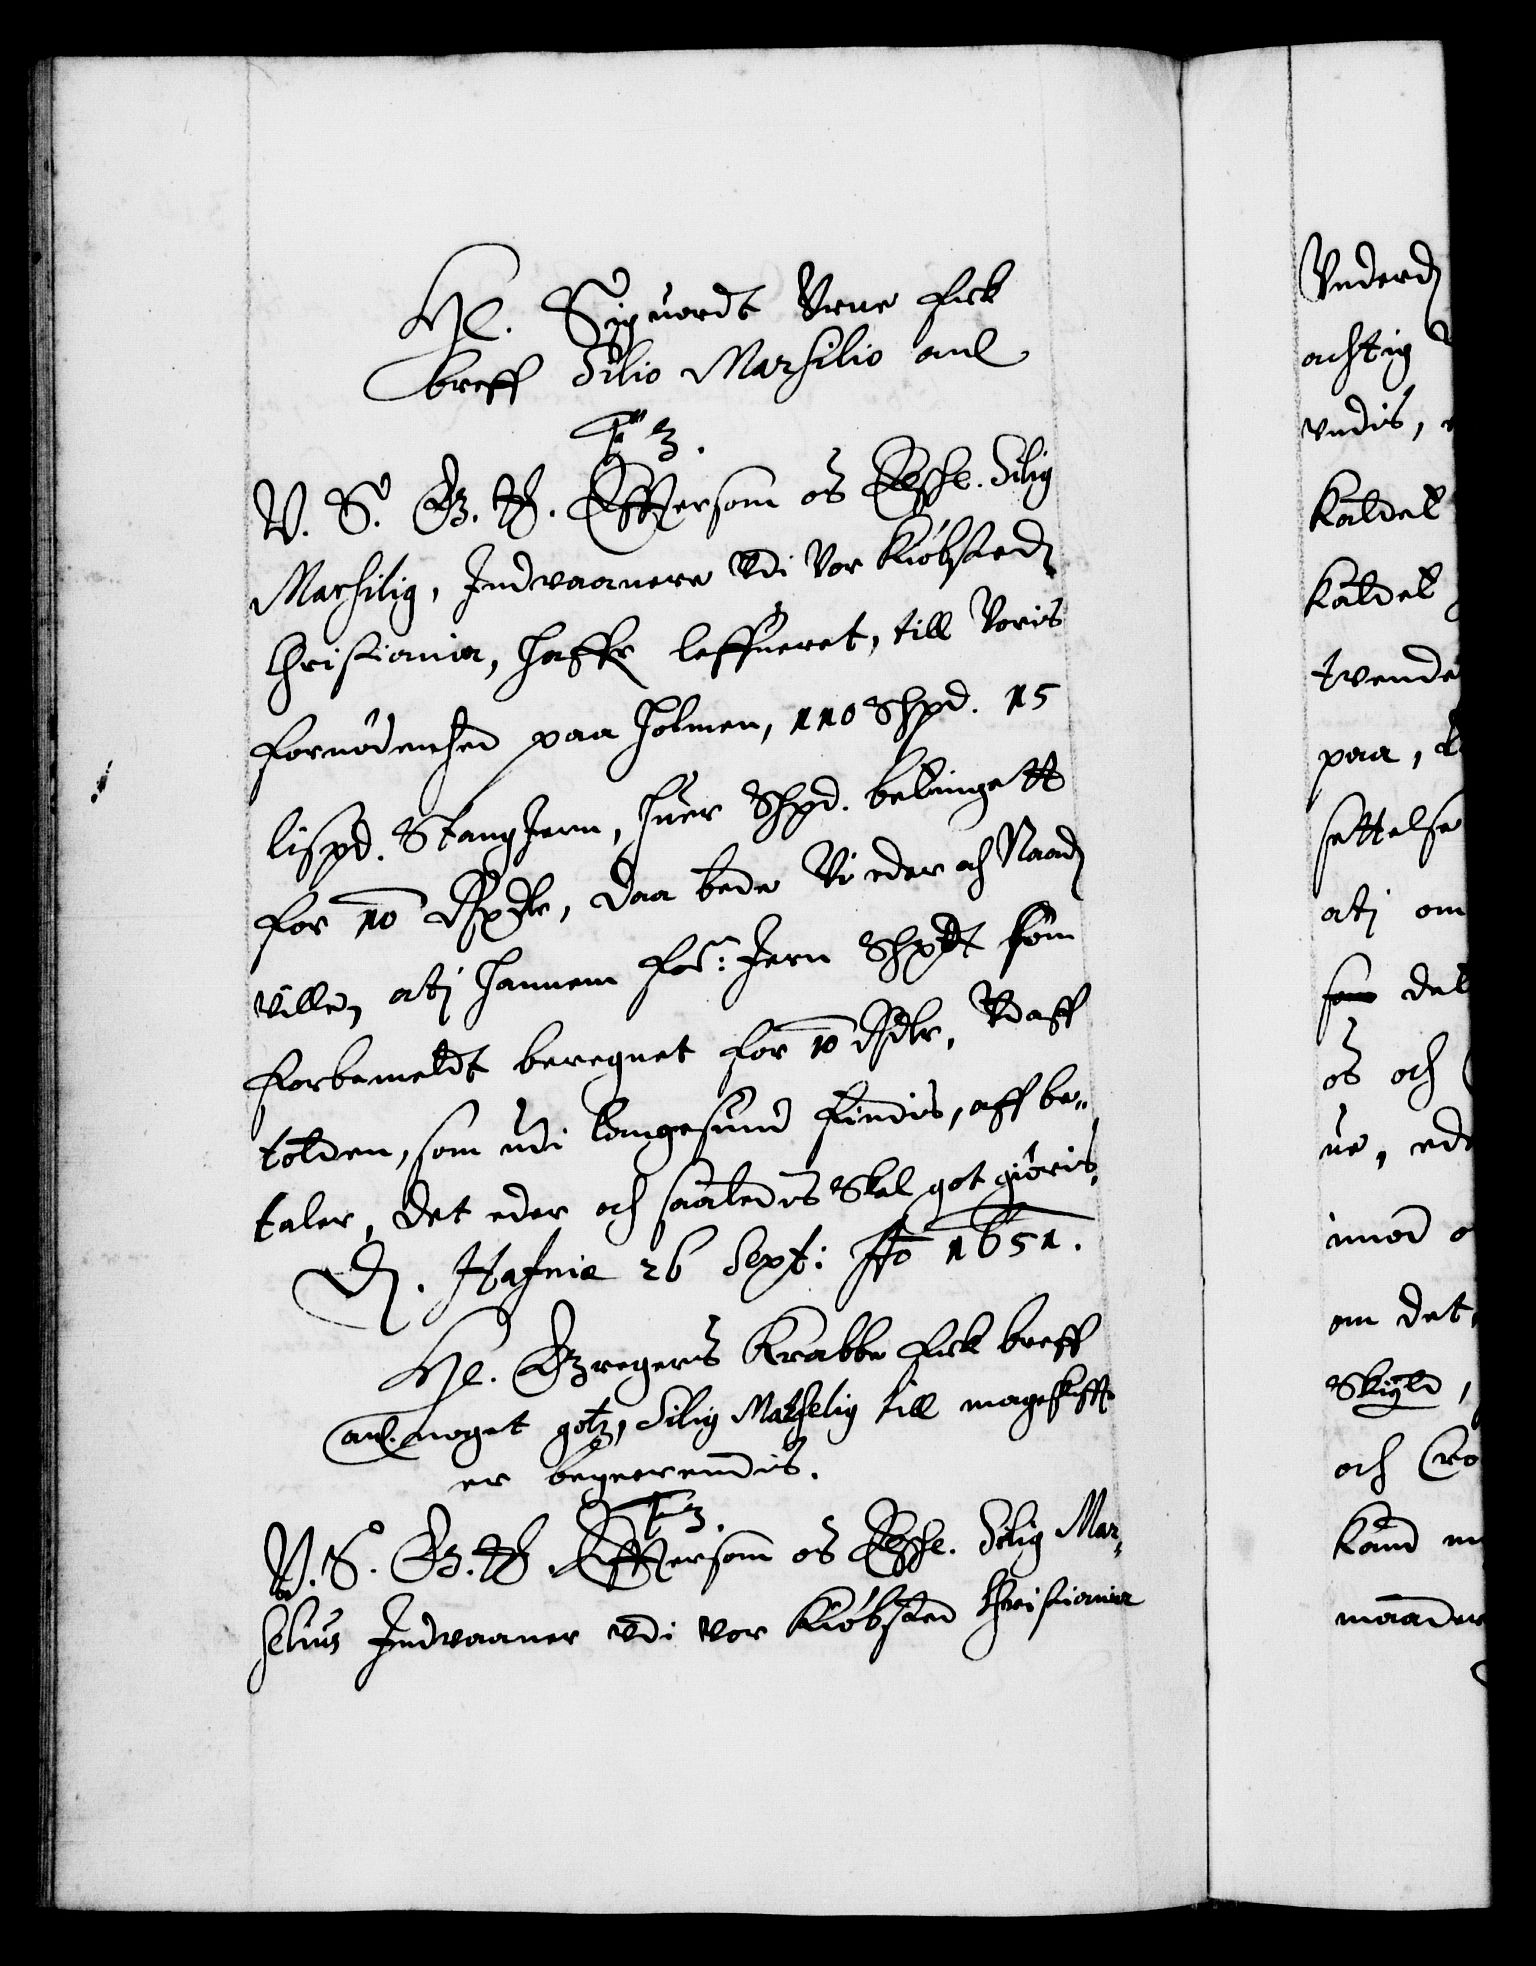 He. Siguordt Vrne fick
breff Silio Marsilio anl
F 3.
V. S. G. T. Efftersom os Elschl. Silig
Marsilig, Indvaanere Vdi Vor Kiøbstedz
Christiania, haffr leffueret, till Voris
fornødenhed paa Holmen, 110 Shpd. 15
lispd. StangJern, huer Shpd. betingett
for 10 Rixdlr, Daa bede Vi eder och Naadz
ville, atj hannem for: Jern Shpdt som
forbemeldt beregnet for 10 Rdlr, Vdaff
tolden, som udi Langesund findis, aff be-
taler, det eder och saaledis Skal got giøris,
D. Hafniæ 26 Sept: Ao 1651.
He. Gregers Krabbe fick breff
anl. noget gotz, Silig Marselig till mageskifft
er begierendis.
F 3.
V. S. G. T. Efftersom os Elschl. Selig Mar-
selius Indvaaner vdi vor Kiøbsted Christiania
Vnderd
achtig
vndis,
Kaldet
Kaldet
tvende
paa,
settelse
atj om
som det
os och
ue, ede
imod
om det
Skigld,
och Cro
Kand
maader